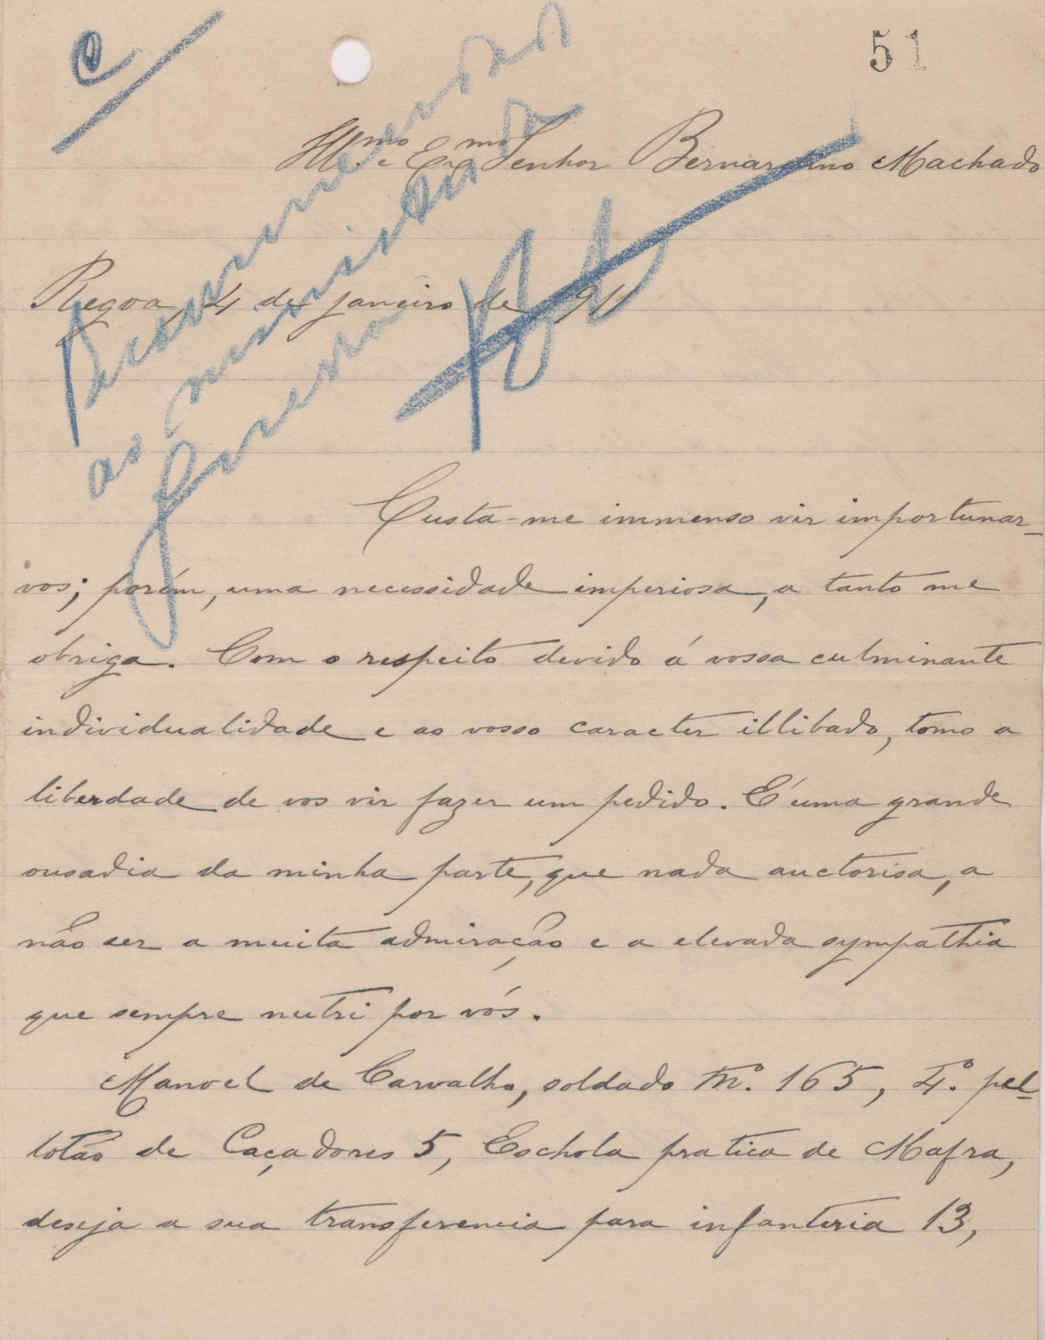 51
Ill.mo e Ex.mo Senhor Bernardino Machado
Regoa, 4 de janeiro de 911
Recommendado
ao ministro da
Guerra
Custa-me immenso vir importunar-
vos; porém, uma necessidade imperiosa, a tanto me
obriga. Com o respeito devido á vossa culminante
individualidade e ao vosso caracter illibado, tomo a
liberdade de vos vir fazer um pedido. É uma grande
ousadia da minha parte, que nada auctorisa, a
não ser a muita admiração e a elevada sympathia
que sempre nutri por vós.
Manoel de Carvalho, soldado n.º 165, 4.º pel-
lotão de Caçadores 5, Eschola pratica de Mafra,
deseja a sua transferencia para infanteria 13,